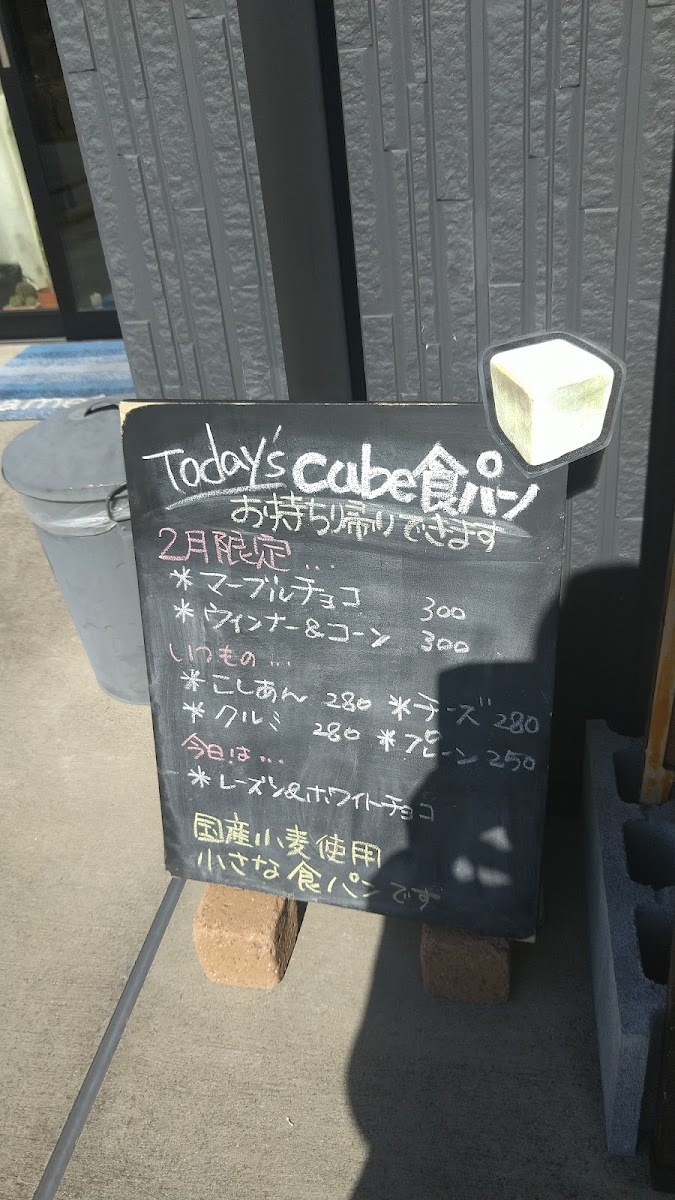 Today's cube食パン
お持ち帰りできます
2月限定...
*マーブルチョコ 300
*ウィンナー&コーン 300
いつもの...
*こしあん 280 *チーズ 280
*クルミ 280 *プレーン 250
今日は...
*レーズン&ホワイトチョコ
国産小麦使用
小さな食パンです